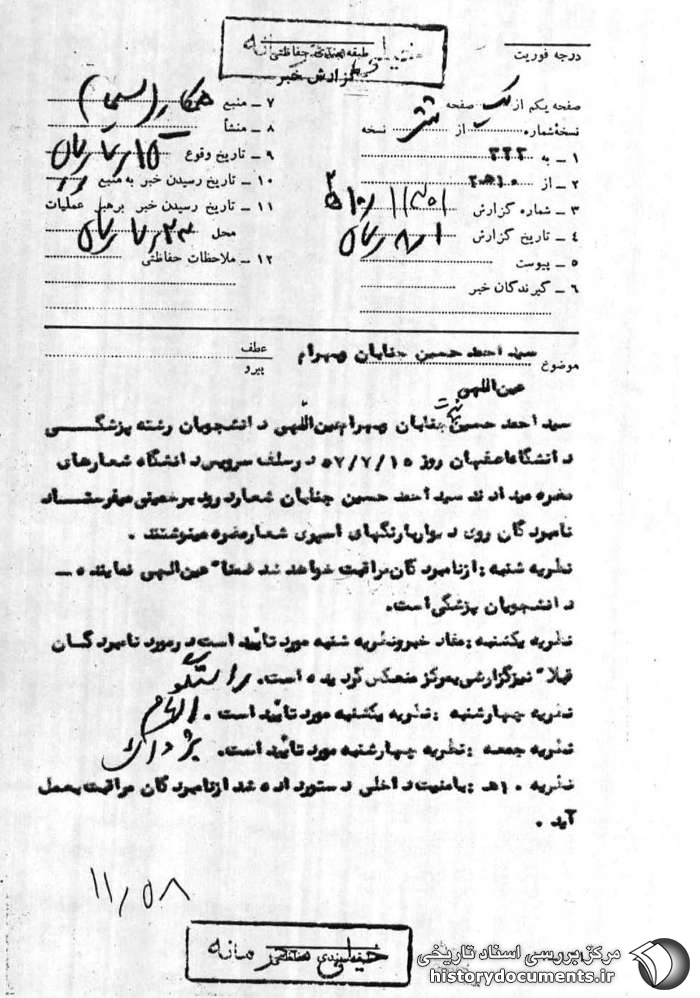 خیلی محرمانه
طبقه بندی حفاظتی
گزارش خبر
درجه فوریت
صفحه یکم از یک صفحه
نسخهٔ شماره از نسخه
۱ ـ به ۳۲۲
۲ ـ از ۱۰ه۲۰
۳ ـ شماره گزارش
۴ ـ تاریخ گزارش
۵ ـ پیوست
۶ ـ گیرندگان خبر
۷ ـ منبع همکار
۸ ـ منشأ
۹ ـ تاریخ وقوع
۱۰ ـ تاریخ رسیدن خبر به منبع
۱۱ ـ تاریخ رسیدن خبر برهبر عملیات
محل
۱۲ ـ ملاحظات حفاظتی
موضوع سید احمد حسین جنابان وبهرام
عین‌اللهی
عطف
پیرو
سید احمد حسین جنابان وبهرام عین‌اللّهی دانشجویان رشته پزشگـــی
دانشگاه اصفهان روز ۵۷/۷/۱۵ در سلف سرویس دانشگاه شعارهای
مضره میدادند سید احمد حسین جنابان شعار درود بر خمینی میفرستـــاد
نامبردگان روی دیوار بارنگهای اسپری شعار مضره مینوشتند .
نظریه شنبه : از نامبردگان مراقبت خواهد شد ضمنا" عین‌الهی نماینده ـ
دانشجویان پزشگی است.
نظریه یکشنبه : مفاد خبر ونظریه شنبه مورد تأئید است در مورد نامبردگــان
قبلا" نیز گزارشی بمرکز منعکس گردیده است. راستگو
نظریه چهارشنبه : نظریه یکشنبه مورد تأئید است . الهام
نظریه جمعه : نظریه چهارشنبه مورد تأئید است.
نظریه ۱۰ هـ : بامنیت داخلی دستور داده شد از نامبردگان مراقبت بعمل
آید .
۱۱/۵۸
خیلی محرمانه
مرکز بررسی اسناد تاریخی
historydocuments.ir